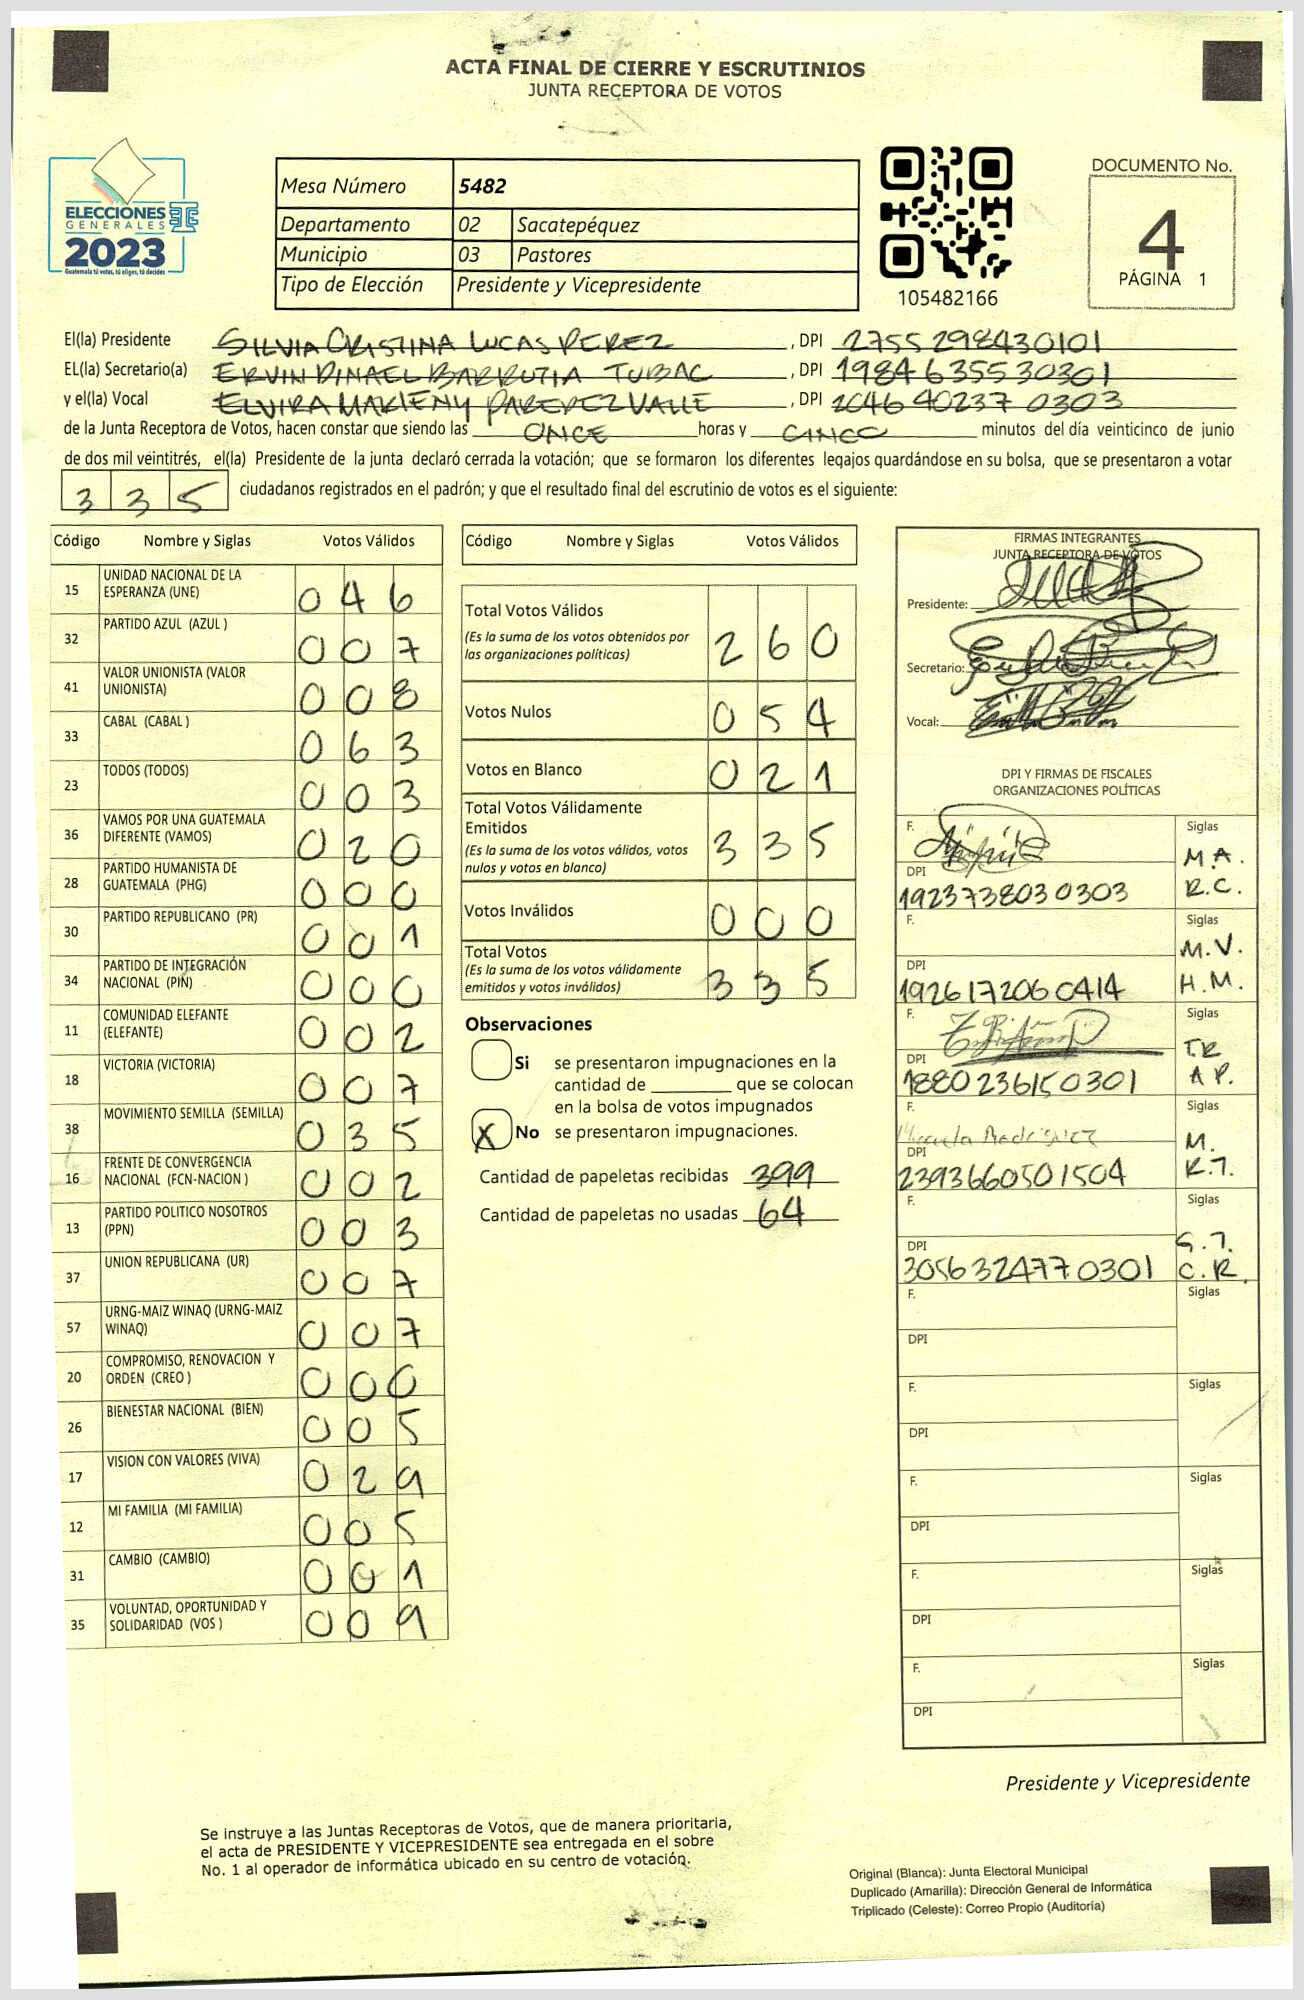 ACTA FINAL DE CIERRE Y ESCRUTINIOS
JUNTA RECEPTORA DE VOTOS
ELECCIONES
GENERALES
2023
Guatemala tú votas, tú eliges, tú decides
Mesa Número 5482
Departamento 02 Sacatepéquez
Municipio 03 Pastores
Tipo de Elección Presidente y Vicepresidente
105482166
DOCUMENTO No.
4
PÁGINA 1
El(la) Presidente SILVIA CRISTINA LUCAS PEREZ , DPI 2755 298430101
EL(la) Secretario(a) ERVIN DINAEL BARRUTIA TUBAC , DPI 1984 63553 0301
y el(la) Vocal ELVIRA MARLENY VALLE , DPI 2046 40237 0303
de la Junta Receptora de Votos, hacen constar que siendo las ONCE horas y CINCO minutos del día veinticinco de junio
de dos mil veintitrés, el(la) Presidente de la junta declaró cerrada la votación; que se formaron los diferentes legajos guardándose en su bolsa, que se presentaron a votar
3 3 5 ciudadanos registrados en el padrón; y que el resultado final del escrutinio de votos es el siguiente:
Código Nombre y Siglas Votos Válidos
15 UNIDAD NACIONAL DE LA ESPERANZA (UNE) 0 4 6
32 PARTIDO AZUL (AZUL ) 0 0 7
41 VALOR UNIONISTA (VALOR UNIONISTA) 0 0 8
33 CABAL (CABAL ) 0 6 3
23 TODOS (TODOS) 0 0 3
36 VAMOS POR UNA GUATEMALA DIFERENTE (VAMOS) 0 2 0
28 PARTIDO HUMANISTA DE GUATEMALA (PHG) 0 0 0
30 PARTIDO REPUBLICANO (PR) 0 0 1
34 PARTIDO DE INTEGRACIÓN NACIONAL (PIN) 0 0 0
11 COMUNIDAD ELEFANTE (ELEFANTE) 0 0 2
18 VICTORIA (VICTORIA) 0 0 7
38 MOVIMIENTO SEMILLA (SEMILLA) 0 3 5
16 FRENTE DE CONVERGENCIA NACIONAL (FCN-NACION ) 0 0 2
13 PARTIDO POLITICO NOSOTROS (PPN) 0 0 3
37 UNION REPUBLICANA (UR) 0 0 7
57 URNG-MAIZ WINAQ (URNG-MAIZ WINAQ) 0 0 7
20 COMPROMISO, RENOVACION Y ORDEN (CREO ) 0 0 0
26 BIENESTAR NACIONAL (BIEN) 0 0 5
17 VISION CON VALORES (VIVA) 0 2 9
12 MI FAMILIA (MI FAMILIA) 0 0 5
31 CAMBIO (CAMBIO) 0 0 1
35 VOLUNTAD, OPORTUNIDAD Y SOLIDARIDAD (VOS ) 0 0 9
Código Nombre y Siglas Votos Válidos
Total Votos Válidos 2 6 0
(Es la suma de los votos obtenidos por
las organizaciones políticas)
Votos Nulos 0 5 4
Votos en Blanco 0 2 1
Total Votos Válidamente
Emitidos 3 3 5
(Es la suma de los votos válidos, votos
nulos y votos en blanco)
Votos Inválidos 0 0 0
Total Votos
(Es la suma de los votos válidamente
emitidos y votos inválidos) 3 3 5
Observaciones
Si se presentaron impugnaciones en la
cantidad de ________ que se colocan
en la bolsa de votos impugnados
X No se presentaron impugnaciones.
Cantidad de papeletas recibidas 399
Cantidad de papeletas no usadas 64
FIRMAS INTEGRANTES
JUNTA RECEPTORA DE VOTOS
Presidente:
Secretario:
Vocal:
DPI Y FIRMAS DE FISCALES
ORGANIZACIONES POLÍTICAS
F. Siglas
M.A.
DPI R.C.
1923738030303
F. Siglas
M.V.
DPI H.M.
1926172060414
F. Siglas
TR
DPI A P.
1880236150301
F. Siglas
Micaela Rodriguez M.
DPI R.T.
2393660501504
F. Siglas
G.T.
DPI C.R.
3056324770301
F. Siglas
DPI
F. Siglas
DPI
F. Siglas
DPI
F. Siglas
DPI
F. Siglas
DPI
Presidente y Vicepresidente
Se instruye a las Juntas Receptoras de Votos, que de manera prioritaria,
el acta de PRESIDENTE Y VICEPRESIDENTE sea entregada en el sobre
No. 1 al operador de informática ubicado en su centro de votación.
Original (Blanca): Junta Electoral Municipal
Duplicado (Amarilla): Dirección General de Informática
Triplicado (Celeste): Correo Propio (Auditoría)